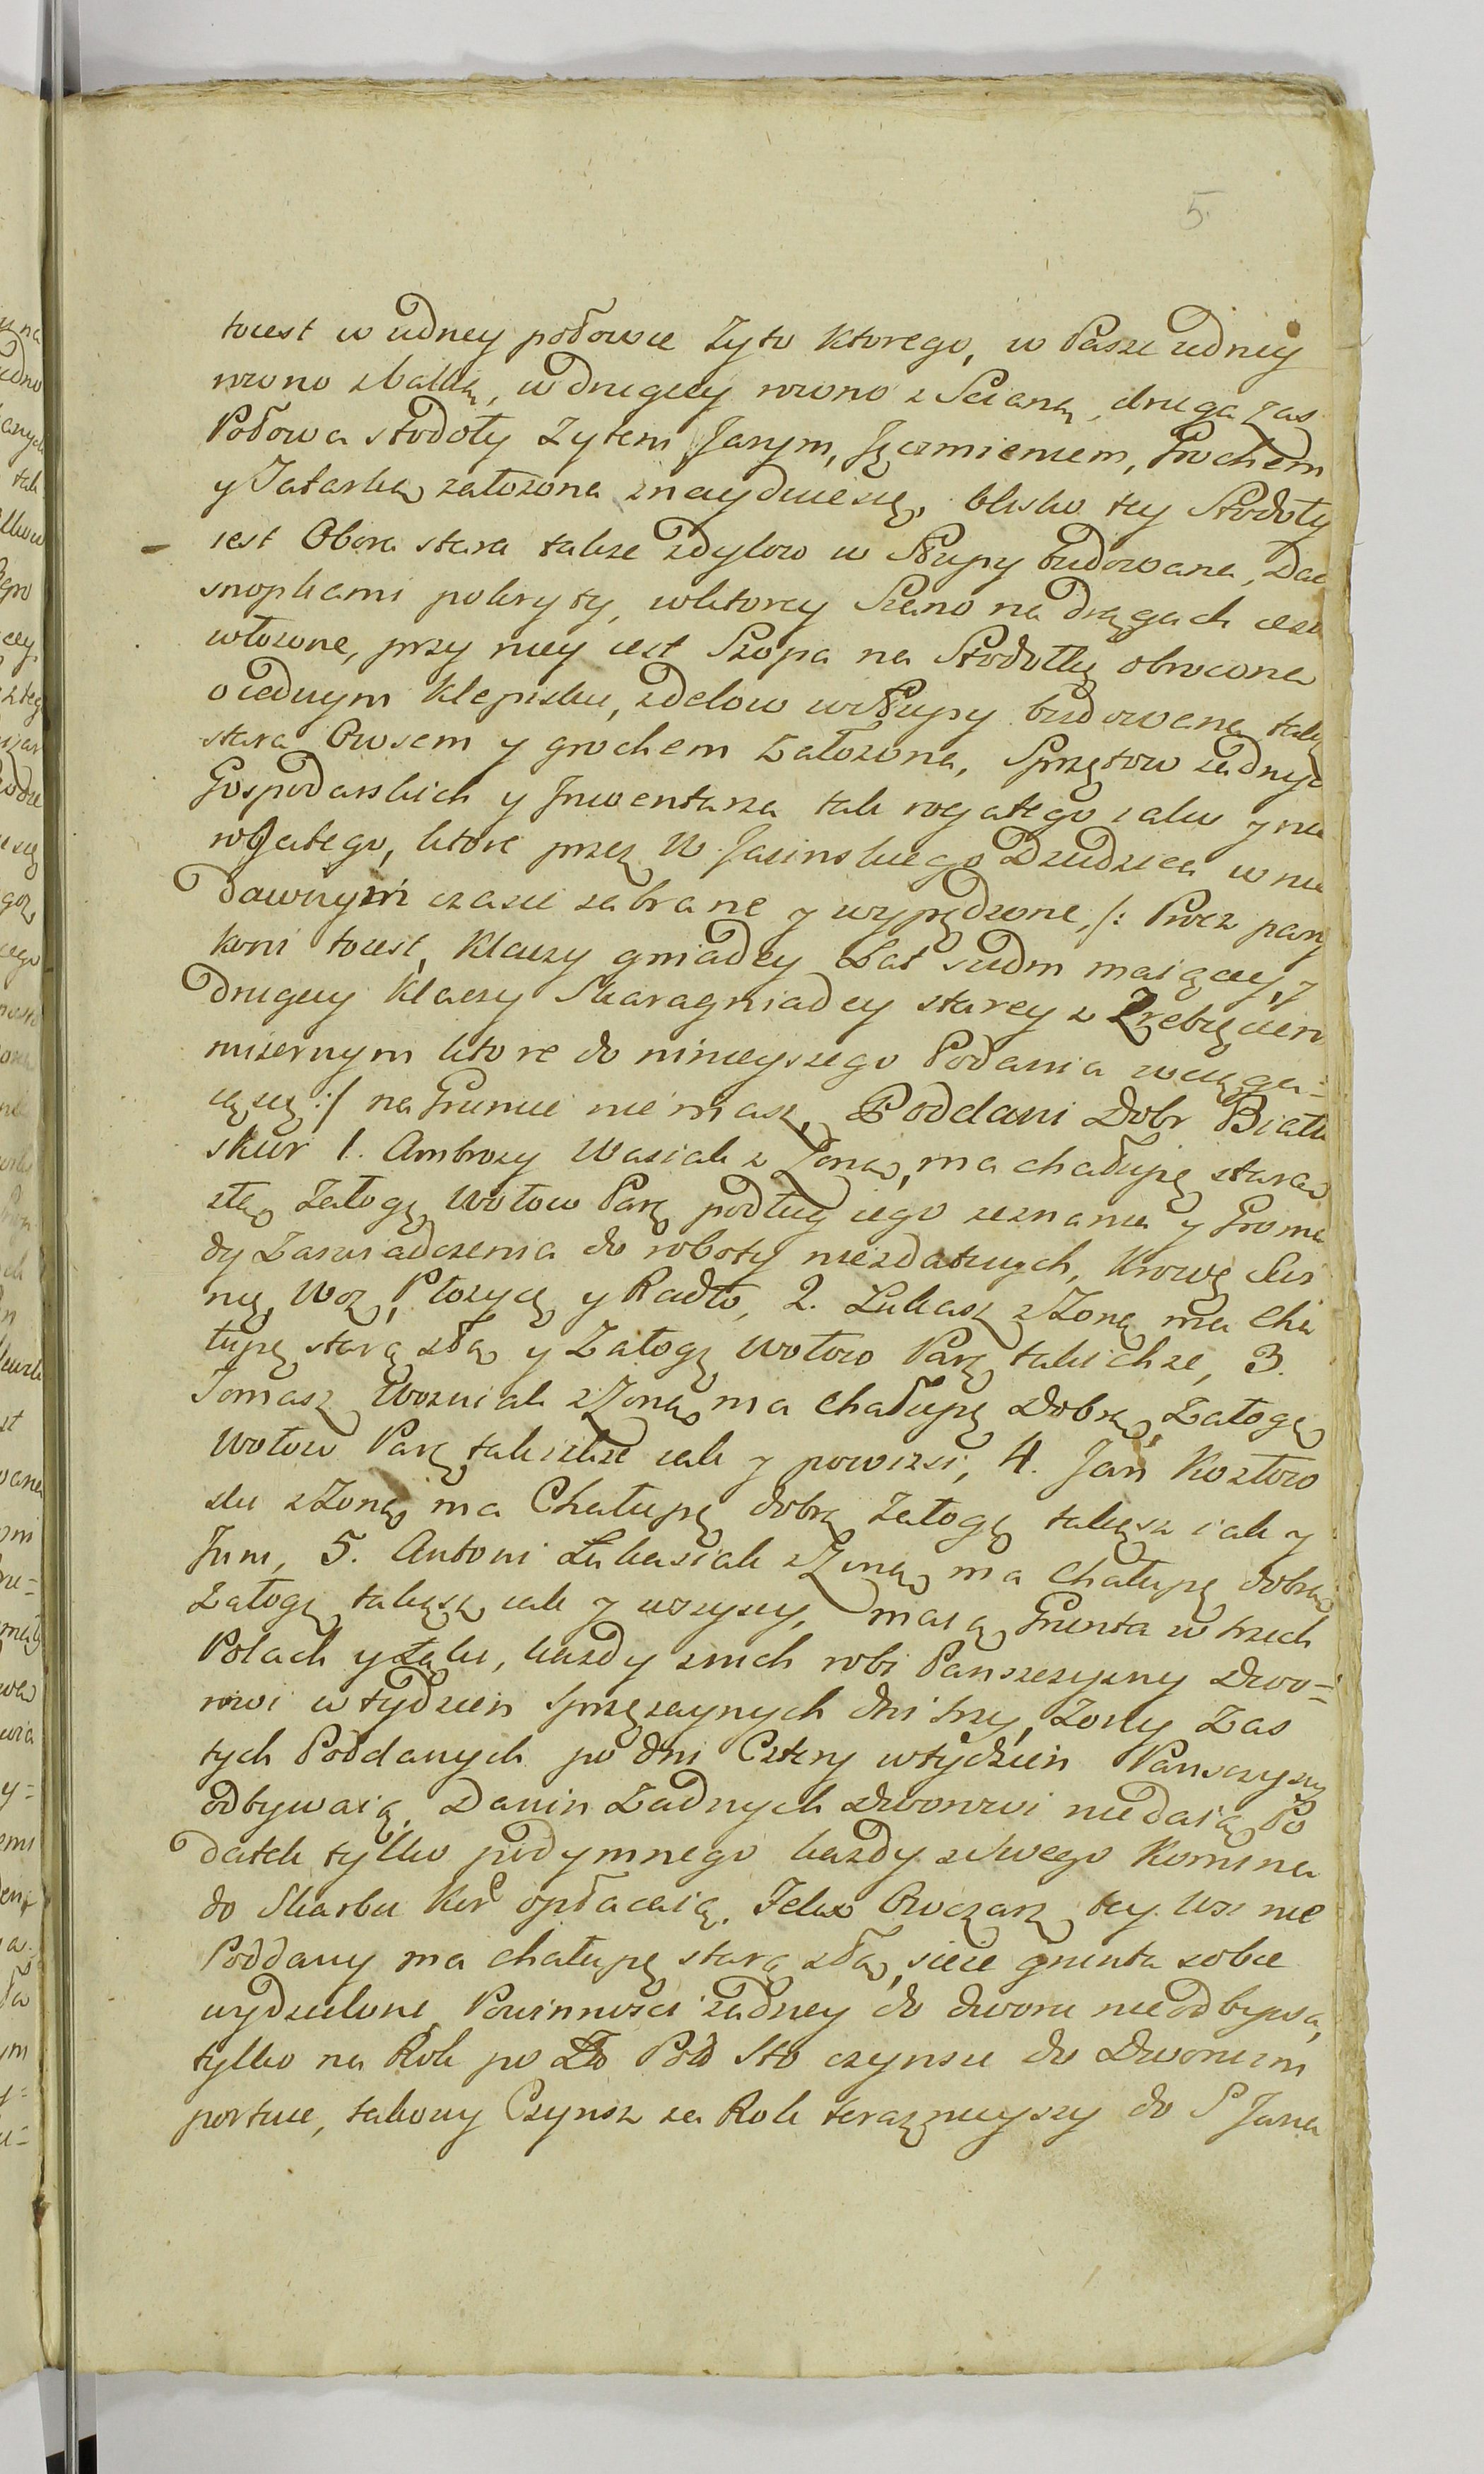 5.
toiest w iedney połowie Zyto ktorego, w Pasze iedney
rowno z balką, w drugiey rowno z Scianą, druga zas
Połowa stodoły Zytem Jarym, Jęczmieniem, Grochem
y Tatarką załozona znayduie się, blisko tey Stodoły
iest Obora stara takze z dylow w Słupy budowana, Dac
snopkami pokryty, w ktorey Siano na drągach iest
włozone, przy niey iest Szopa na Stodołkę obrocona
o iednym Klepisku, z delow w Słupy budowana takze
stara Owsem y grochem załozona, Sprzętow zadnych
Gospodarskich y Inwentarza tak rogatego iako y nie
rogatego, ktore przez W. Jasinskiego Dziedzica w nie
dawnym czasie zabrane y wypędzone, /: Procz pary
koni toiest, Klaczy gniadey Lat siedm maiącey, y
drugiey Klaczy Skarogniadey starey z Zrebięciem
mizernym ktore do ninieyszego Podania wciąga=
ią się :/ na Gruncie nie masz, Poddani Dobr Biało
skur 1. Ambrozy Wasiak z Zoną, ma chałupę starą
złą, Załogę Wołow Parę podług iego zeznania y Groma
dy Zaswiadczenia do roboty niezdatnych, Krowę
Woz, Płozycę y Radło, 2. Lukasz z Zoną ma Cha
łupę starą złą y Załogę Wołow Parę takichze, 3.
Tomasz Wozniak z Zoną ma Chałupę Dobrą, Załogę
Wołow Parę takichze iak y powyzsi, 4. Jan Kozłow
ski z Zoną ma Chałupę dobrą Załogę takąsz iak y
Inni, 5. Antoni Lukasiak z Zoną ma Chałupę dobrą
Załogę takąsz iak y wszyscy, maią Grunta w trzech
Polach y Łąki, kazdy z nich robi Panszczyzny Dwo=
rowi w tydzien sprzęzaynych dni trzy, Zony Zas
tych Poddanych po dni Cztery w tydzien Panszczyzny
odbywaią, Danin Zadnych Dworowi nie daią, Po
datek tylko podymnego kazdy z swego Komina
do Skarbu opłacaią. Felix Owczarz tey Wsi nie
Poddany ma chałupę starą złą, sieie grunta sobie
wydzielone Powinnosci zadney do dworu nie odbywa,
tylko na Rok po Zło Pol Sto czynszu do Dworu im
portuie, takowy Czynsz za Rok teraznieyszy do S Jana